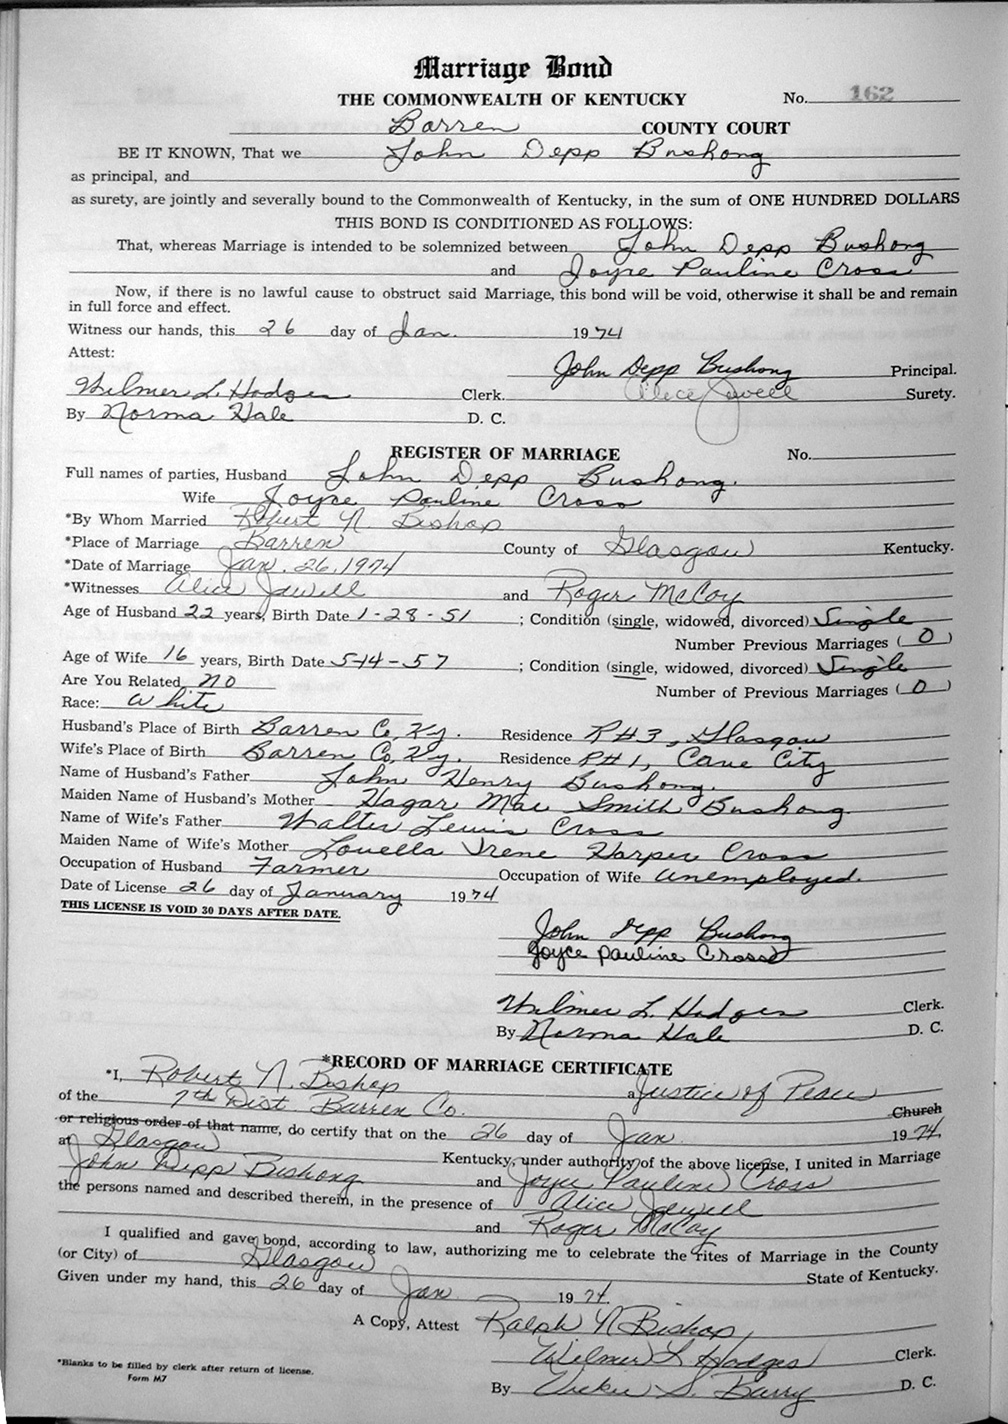 Marriage Bond
THE COMMONWEALTH OF KENTUCKY No. 162
Barren COUNTY COURT
BE IT KNOWN, That we John Depp Bushong
as principal, and
as surety, are jointly and severally bound to the Commonwealth of Kentucky, in the sum of ONE HUNDRED DOLLARS
THIS BOND IS CONDITIONED AS FOLLOWS:
That, whereas Marriage is intended to be solemnized between John Depp Bushong
and Joyce Pauline Cross
Now, if there is no lawful cause to obstruct said Marriage, this bond will be void, otherwise it shall be and remain
in full force and effect.
Witness our hands, this 26 day of Jan. 1974
Attest:
John Depp Bushong Principal.
Wilmer L. Hodges Clerk. Alice Jewell Surety.
By Norma Hale D. C.
REGISTER OF MARRIAGE No.
Full names of parties, Husband John Depp Bushong.
Wife Joyce Pauline Cross
*By Whom Married Robert N. Bishop
*Place of Marriage Barren County of Glasgow Kentucky.
*Date of Marriage Jan. 26, 1974
*Witnesses Alice Jewell and Roger McCoy
Age of Husband 22 years, Birth Date 1-28-51 ; Condition (single, widowed, divorced) Single
Number Previous Marriages (0)
Age of Wife 16 years, Birth Date 5-14-57 ; Condition (single, widowed, divorced) Single
Are You Related NO Number of Previous Marriages (0)
Race: White
Husband's Place of Birth Barren Co, Ky. Residence R#3, Glasgow
Wife's Place of Birth Barren Co, Ky. Residence R#1, Cave City
Name of Husband's Father John Henry Bushong.
Maiden Name of Husband's Mother Hagar Mae Smith Bushong
Name of Wife's Father Walter Lewis Cross
Maiden Name of Wife's Mother Louella Irene Harper Cross
Occupation of Husband Farmer Occupation of Wife Unemployed.
Date of License 26 day of January 1974
THIS LICENSE IS VOID 30 DAYS AFTER DATE.
John Depp Bushong
Joyce Pauline Cross
Wilmer L. Hodges Clerk.
By Norma Hale D. C.
*RECORD OF MARRIAGE CERTIFICATE
*I, Robert N. Bishop a Justice of Peace
of the 7th Dist. Barren Co. Church
or religious order of that name, do certify that on the 26 day of Jan 1974.
at Glasgow Kentucky, under authority of the above license, I united in Marriage
John Depp Bushong and Joyce Pauline Cross
the persons named and described therein, in the presence of Alice Jewell
and Roger McCoy
I qualified and gave bond, according to law, authorizing me to celebrate the rites of Marriage in the County
(or City) of Glasgow State of Kentucky.
Given under my hand, this 26 day of Jan 1974.
A Copy, Attest Ralph N Bishop,
Wilmer L Hodges Clerk.
*Blanks to be filled by clerk after return of license.
Form M7
By Vickie S. Barry D. C.